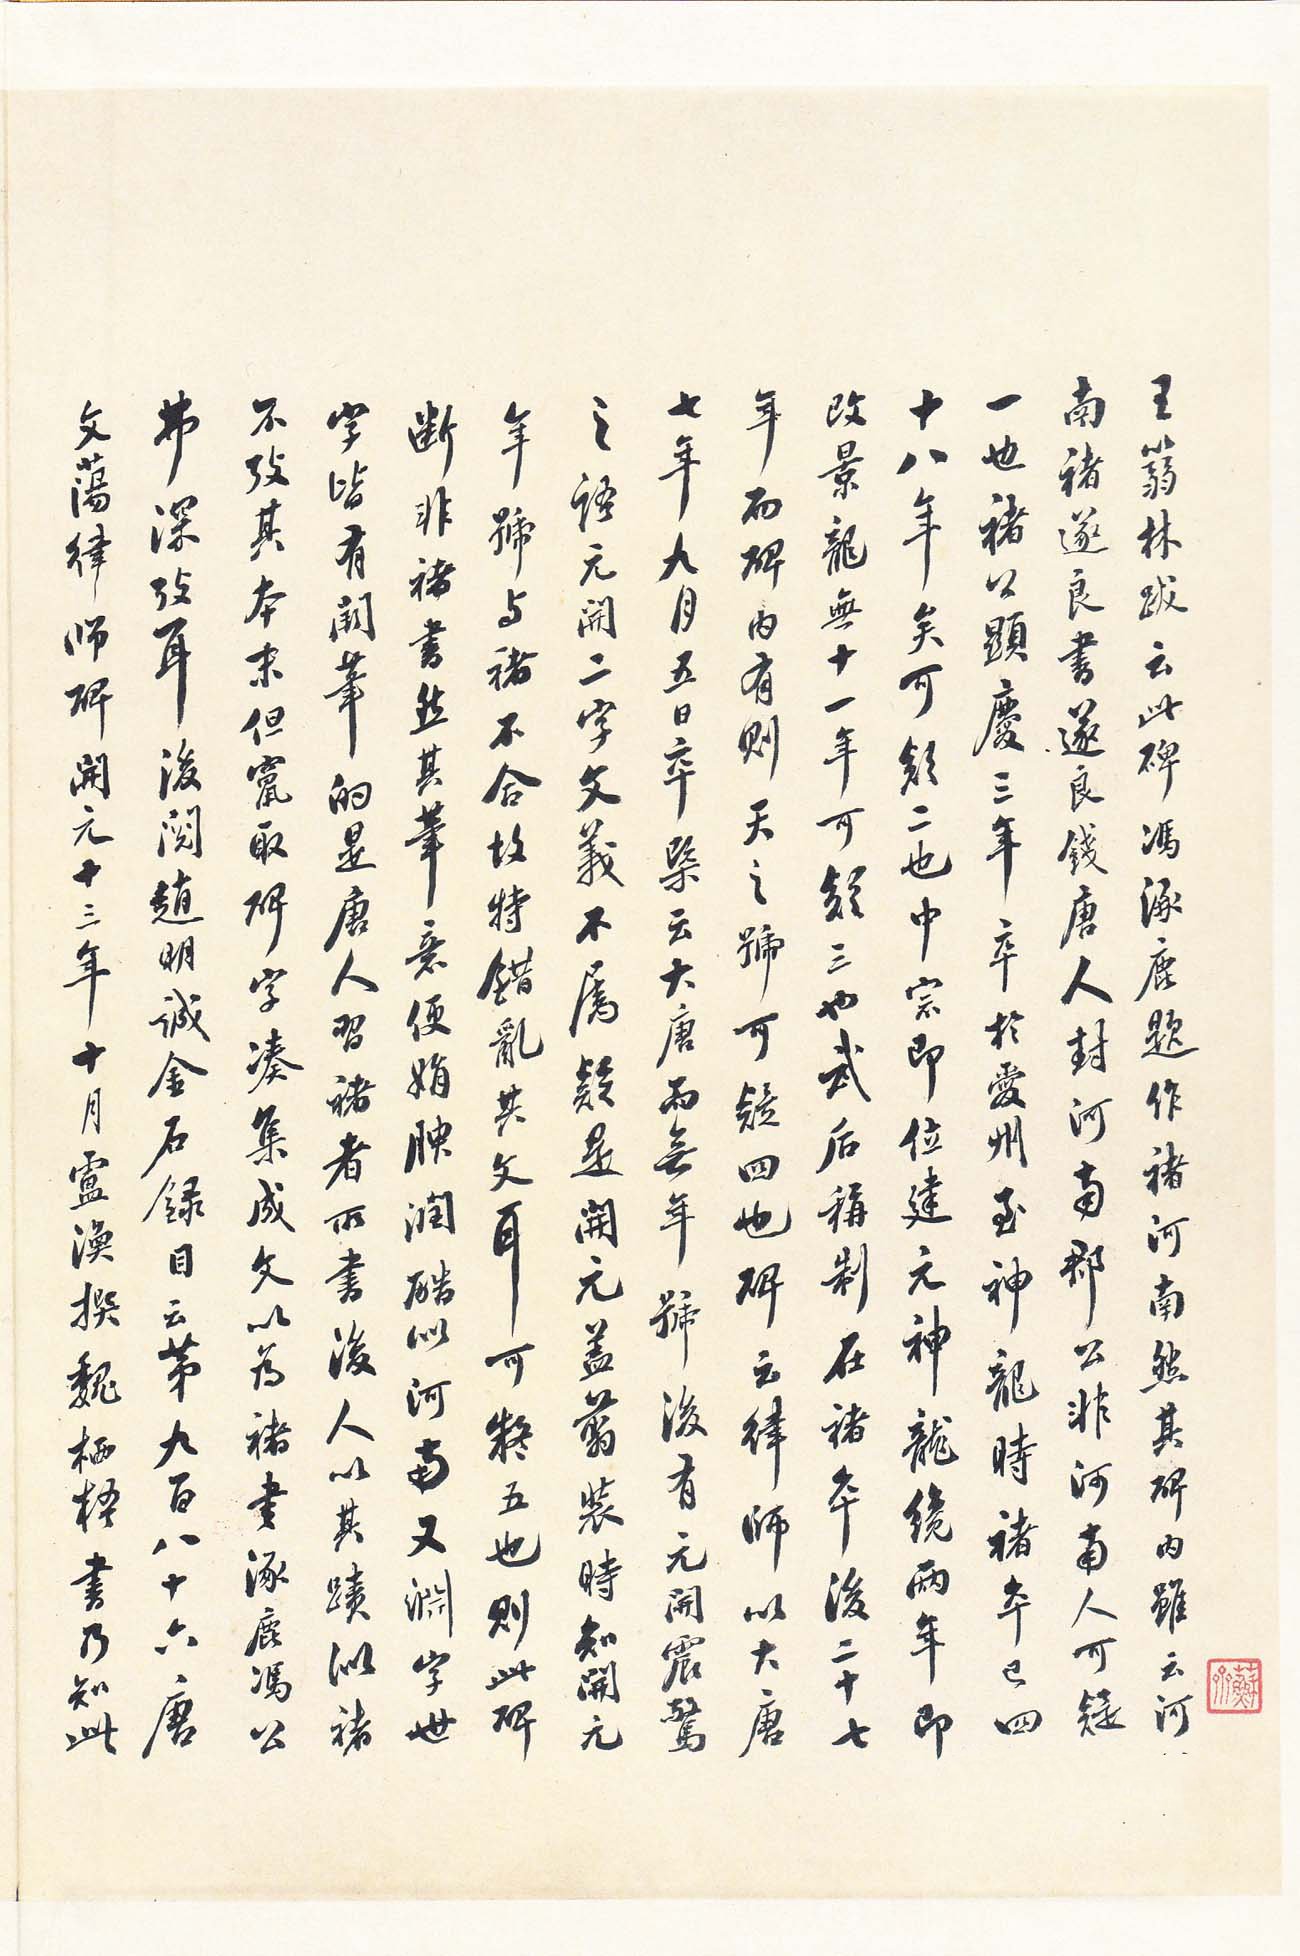 王蒻林跋云此碑馮涿鹿題作褚河南然其碑内雖云河
南褚遂良書遂良錢唐人封河南郡公非河南人可疑
一也褚公顯慶三年卒於愛州至神龍時褚卒已四
十八年矣可疑二也中宗即位建元神龍纔兩年即
改景龍無十一年可疑三也武后稱制在褚卒後二十七
年而碑内有則天之號可疑四也碑云律師以大唐
七年九月五日卒槩云大唐而無年號後有元開震驚
之語元開二字文義不屬疑是開元蓋翦裝時知開元
年號与褚不合故特錯亂其文耳可疑五也則此碑
斷非褚書然其筆意便娟腴潤酷似河南又淵字世
字皆有闕筆的是唐人習褚者所書後人以其蹟似褚
不攷其本末但竄取碑字湊集成文以為褚書涿鹿馮公
弗深攷耳後閱趙明誠金石録目云第九百八十六唐
文蕩律師碑開元十三年十月盧渙撰魏栖梧書乃知此